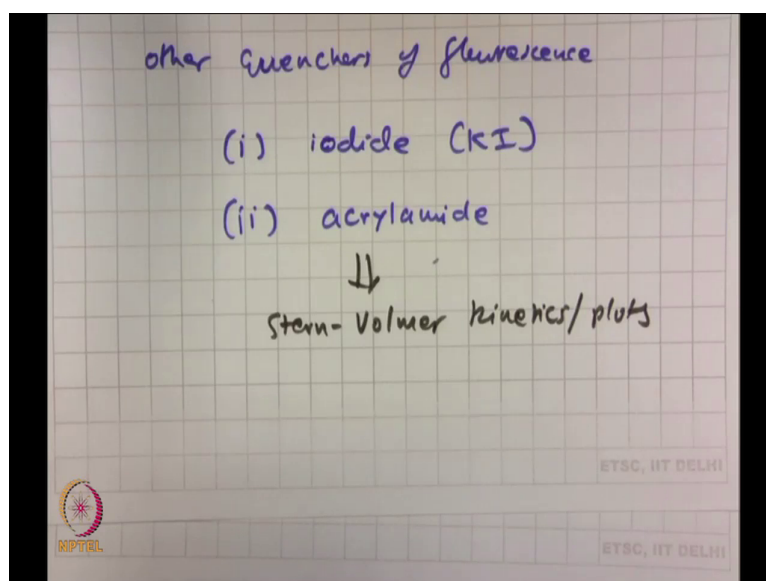 other Quenchers of fluorescence
(i) iodide (KI)
(ii) acrylamide
Stern-Volmer kinetics/plots
ETSC, IIT DELHI
NPTEL
ETSC, IIT DELHI